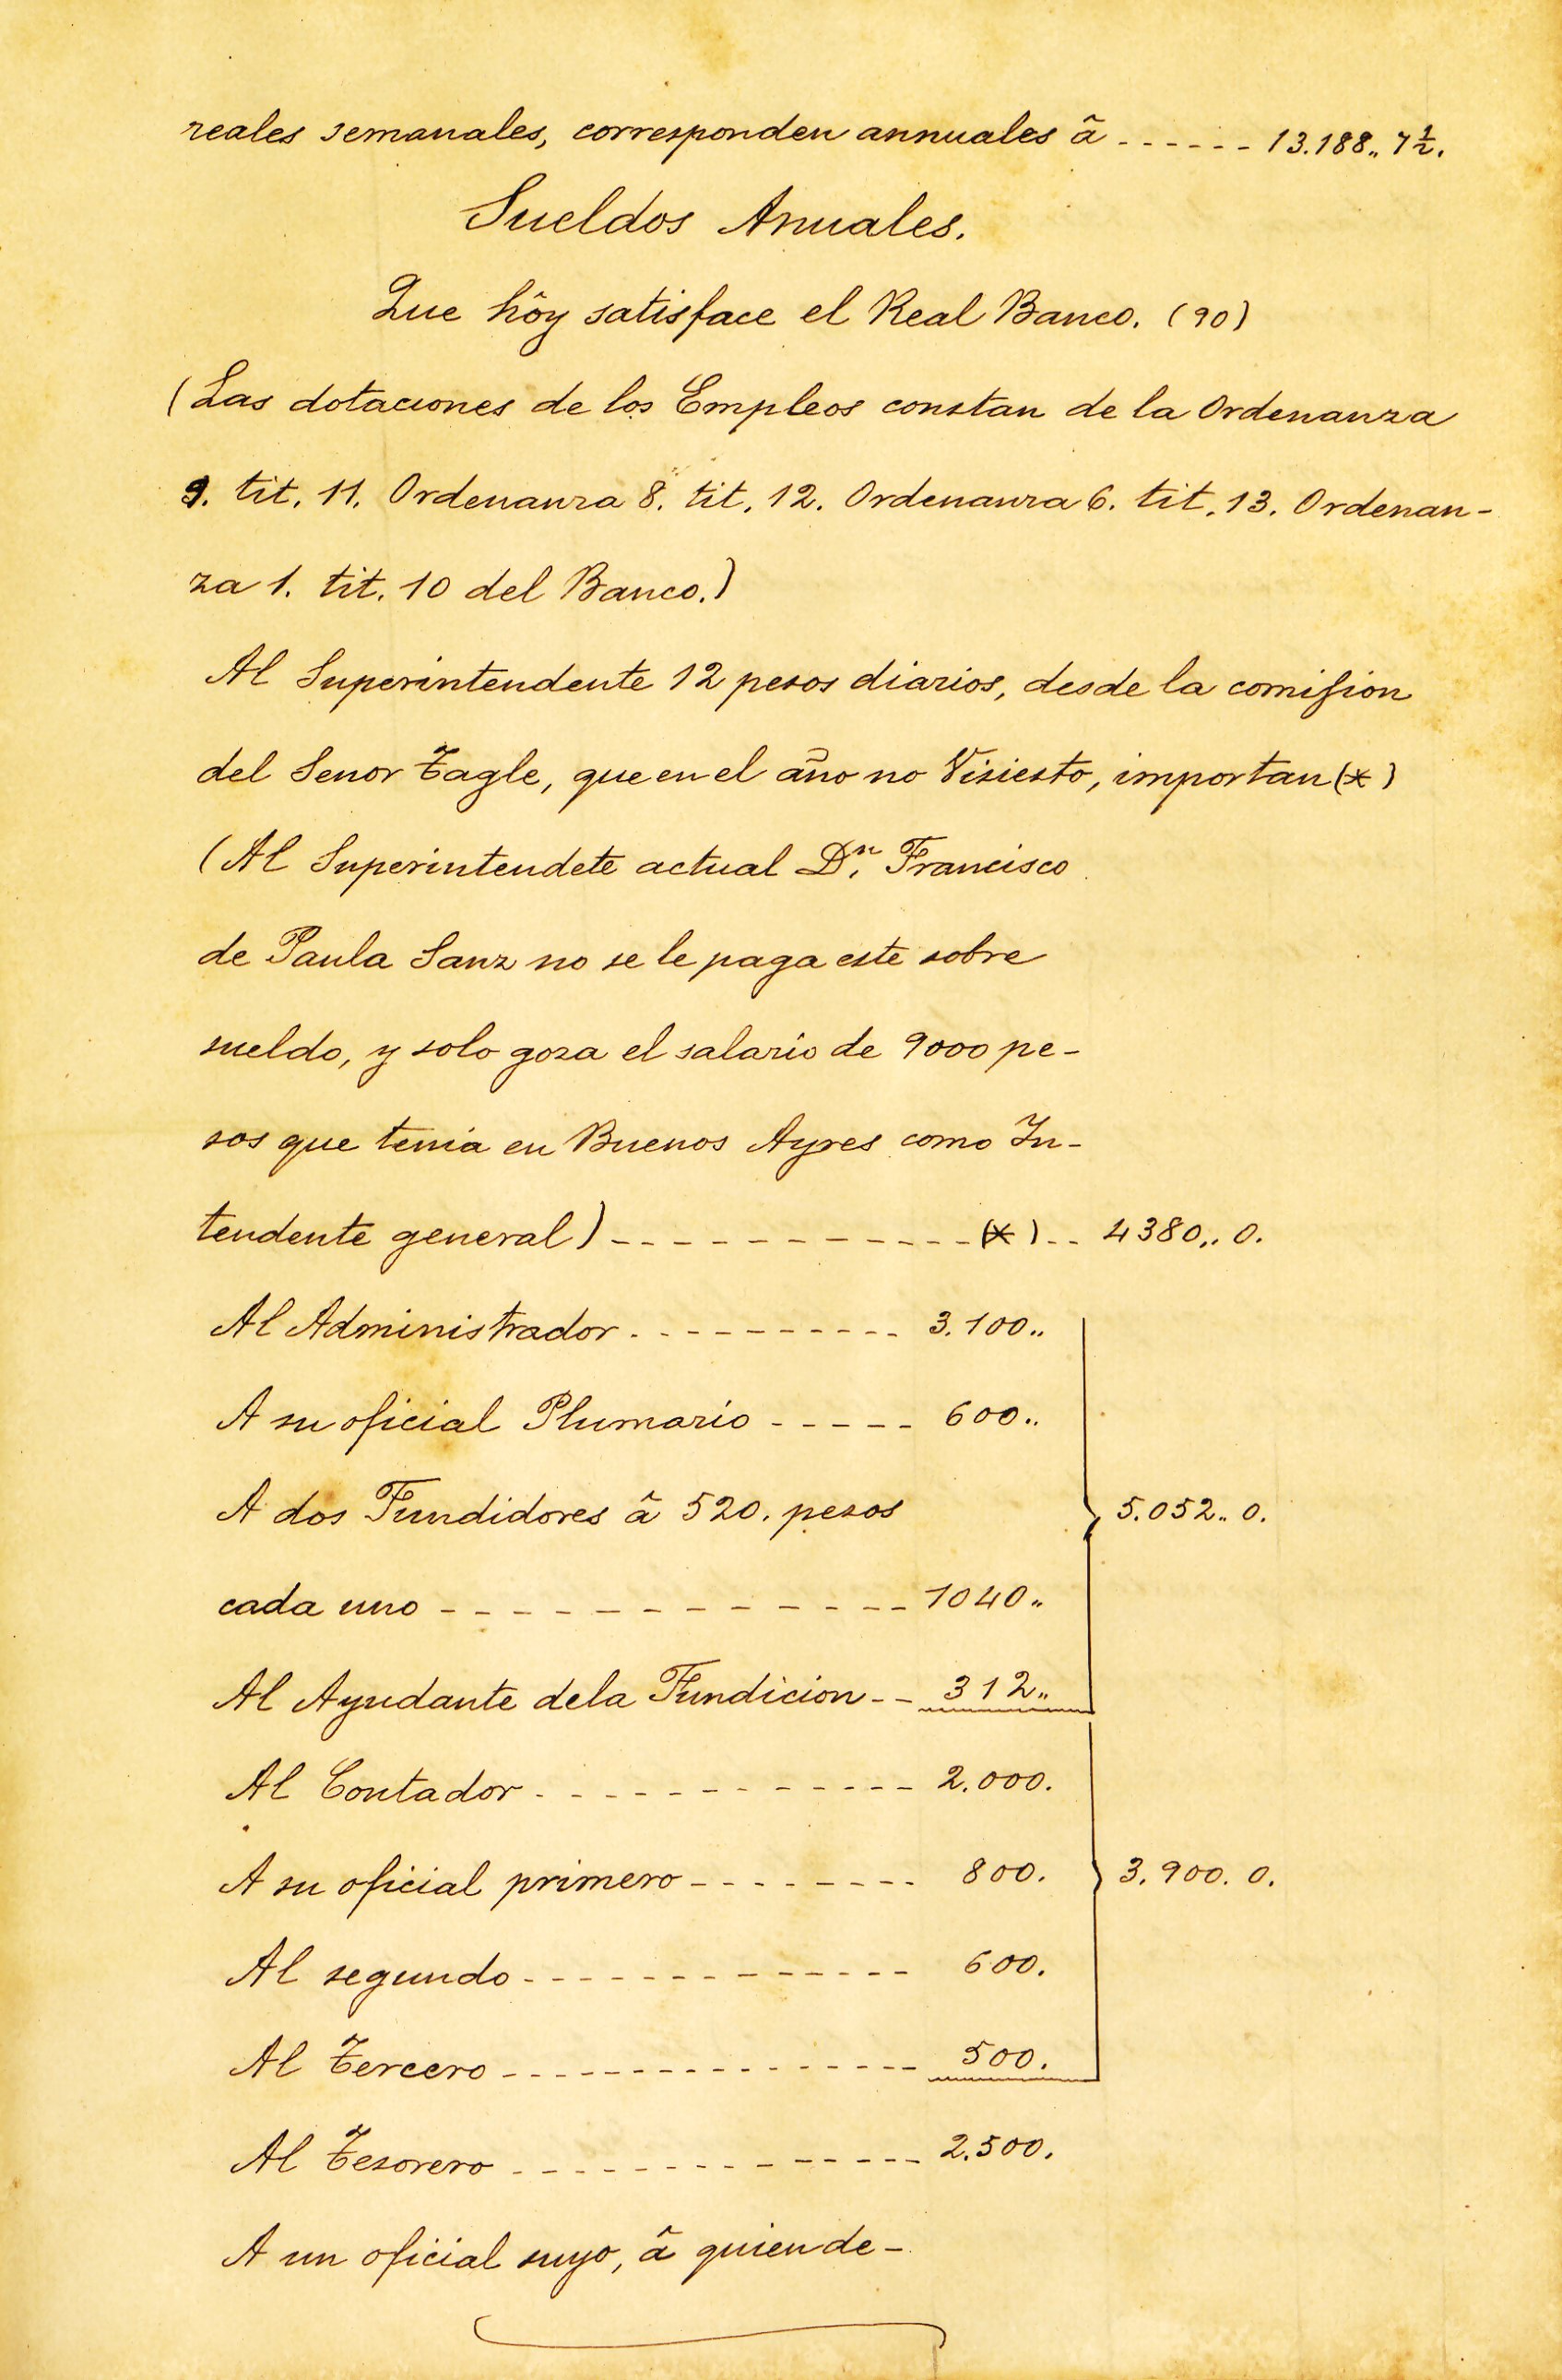 reales semanales, corresponden annuales â ------ 13.188,, 7 1/2.
Sueldos Anuales.
Que hôy satisface el Real Banco. (90)
(Las dotaciones de los Empleos constan de la Ordenanza
9. tit. 11. Ordenanza 8. tit. 12. Ordenanza 6. tit. 13. Ordenan-
za 1. tit. 10 del Banco.)
Al Superintendente 12 pesos diarios, desde la comision
del Senor Tagle, que en el año no Visiesto, importan (x)
(Al Superintendete actual Dn. Francisco
de Paula Sanz no se le paga este sobre
sueldo, y solo goza el salario de 9000 pe-
sos que tenia en Buenos Ayres como In-
tendente general) ------------- (x) -- 4380,, 0.
Al Administrador ---------- 3.100,,
A su oficial Plumario ----- 600,,
A dos Fundidores â 520. pesos 5.052,, 0.
cada uno ------------- 1040,,
Al Ayudante dela Fundicion -- 312,,
Al Contador ------------- 2.000.
A su oficial primero -------- 800. 3.900. 0.
Al segundo ------------- 600.
Al Tercero --------------- 500.
Al Tesorero -------------- 2.500.
A un oficial suyo, â quien de-